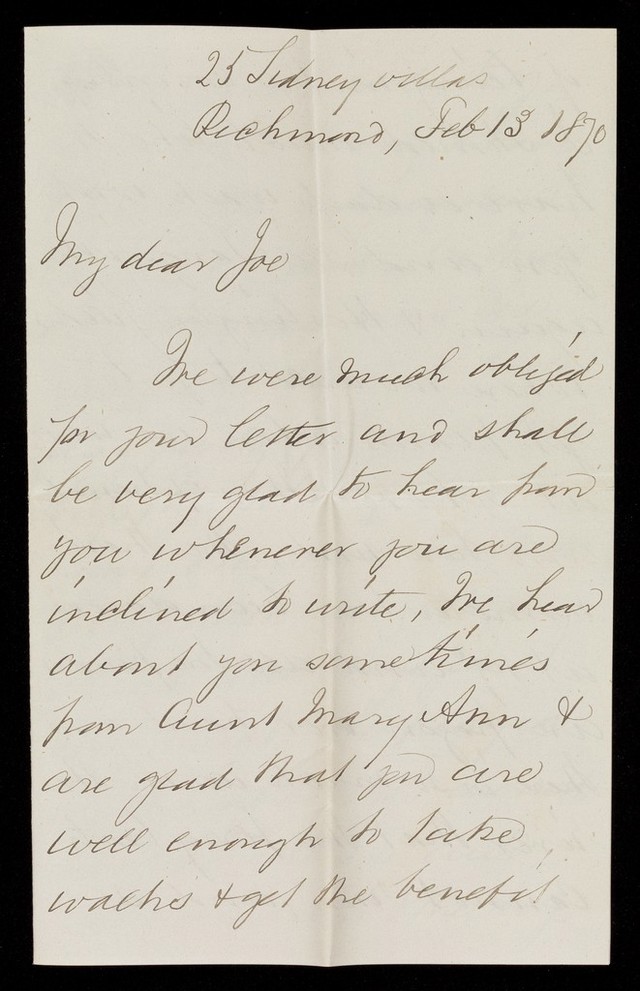 25 Sidney villas
Richmond, Feb 13 1870
My dear Joe
We were much obliged
for your letter and shall
be very glad to hear from
you whenever you are
inclined to write, We hear
about you sometimes
from Aunt Mary Ann &
are glad that you are
well enough to take
walks & get the benefit